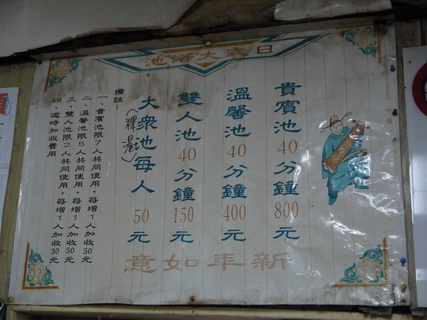 日式大浴池
貴賓池40分鐘800元
溫馨池40分鐘400元
雙人池40分鐘150元
大眾池每人50元
(裸湯)
備註:
一、貴賓池限7人共同使用,每增1人加收50元
二、溫馨池限5人共同使用,每增1人加收50元
三、雙人池限2人共同使用,每增1人加收30元
四、逾時加收費用
新年如意